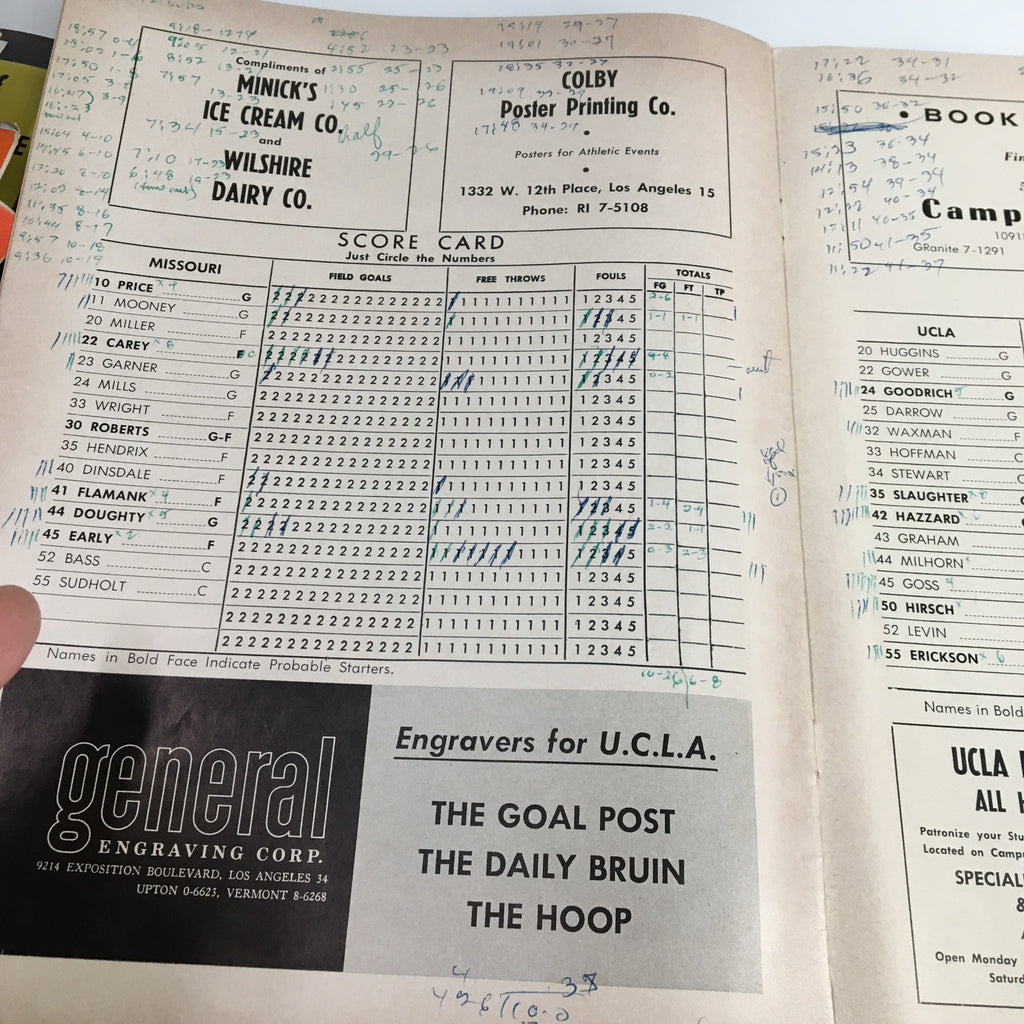 19:14 29-27
19:01 30-29
4:52 23-23
18:35 32-29
17:48 34-29
17:22 34-31
16:36 34-32
15:50 36-32
15:23 36-34
14:13 38-34
12:54 39-34
12:22 40-34
12:11 40-35
11:50 41-35
11:22 41-37
18:57
18:02
17:50
17:05
15:04 4-10
14:45 6-10
13:20 8-10
12:03 8-14
11:35 8-16
10:44 8-17
9:57 10-18
9:36 10-19
9:05 12-21
8:52 13-21
7:57 13-23
7:34 15-23
7:10 17-23
6:48 19-23
(time out)
2:55 25-23
1:30 25-26
half
29-26
Compliments of
MINICK'S
ICE CREAM CO.
and
WILSHIRE
DAIRY CO.
COLBY
Poster Printing Co.
•
Posters for Athletic Events
•
1332 W. 12th Place, Los Angeles 15
Phone: RI 7-5108
• BOOK
Fin
Camp
1091
GRanite 7-1291
SCORE CARD
Just Circle the Numbers
MISSOURI FIELD GOALS FREE THROWS FOULS TOTALS
FG FT TP
10 PRICE G 22222222222222 11111111111 12345 2-6
11 MOONEY G 22222222222222 11111111111 12345 1-1 1-1
20 MILLER F 22222222222222 11111111111 12345
22 CAREY F C 22222222222222 11111111111 12345 4-8
23 GARNER G 22222222222222 11111111111 12345 0-2
24 MILLS G 22222222222222 11111111111 12345
33 WRIGHT F 22222222222222 11111111111 12345
30 ROBERTS G-F 22222222222222 11111111111 12345
35 HENDRIX F 22222222222222 11111111111 12345
40 DINSDALE F 22222222222222 11111111111 12345
41 FLAMANK F 22222222222222 11111111111 12345 1-4 2-4
44 DOUGHTY G 22222222222222 11111111111 12345 2-2 1-1
45 EARLY F 22222222222222 11111111111 12345 0-3 2-3
52 BASS C 22222222222222 11111111111 12345
55 SUDHOLT C 22222222222222 11111111111 12345
22222222222222 11111111111 12345
22222222222222 11111111111 12345
10-26 6-8
Names in Bold Face Indicate Probable Starters.
UCLA
20 HUGGINS G
22 GOWER G
24 GOODRICH G
25 DARROW G
32 WAXMAN F
33 HOFFMAN C
34 STEWART C
35 SLAUGHTER
42 HAZZARD
43 GRAHAM
44 MILHORN
45 GOSS
50 HIRSCH
52 LEVIN
55 ERICKSON
Names in Bold
general
ENGRAVING CORP.
9214 EXPOSITION BOULEVARD, LOS ANGELES 34
UPTON 0-6623, VERMONT 8-6268
Engravers for U.C.L.A.
THE GOAL POST
THE DAILY BRUIN
THE HOOP
UCLA
ALL
Patronize your Stu
Located on Camp
SPECIAL
8
Open Monday
Saturd